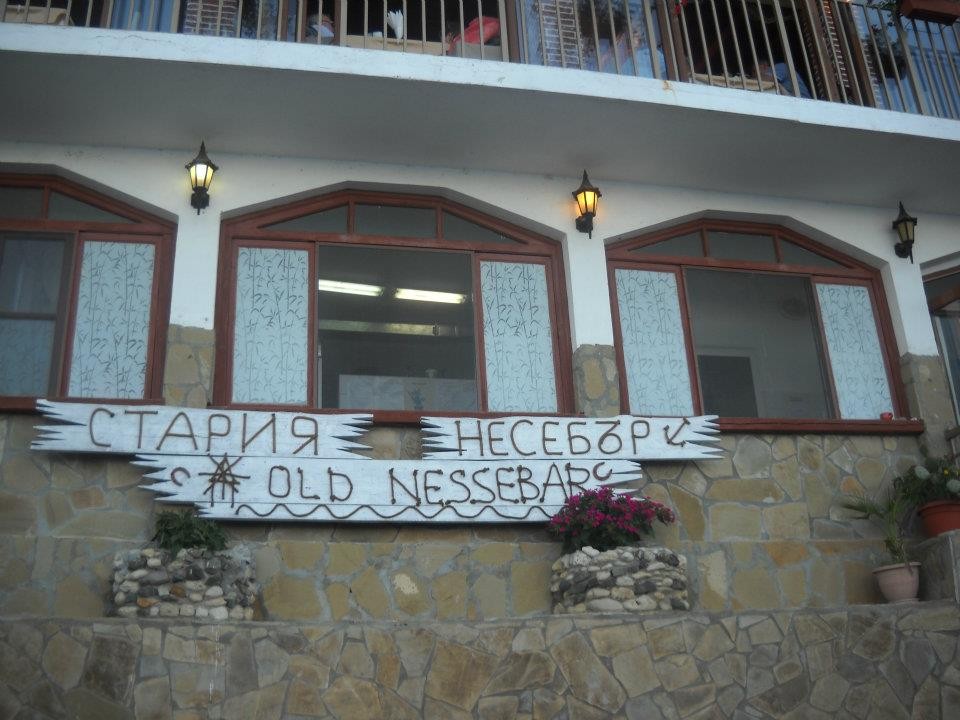 СТАРИЯ НЕСЕБЪР
OLD NESSEBAR